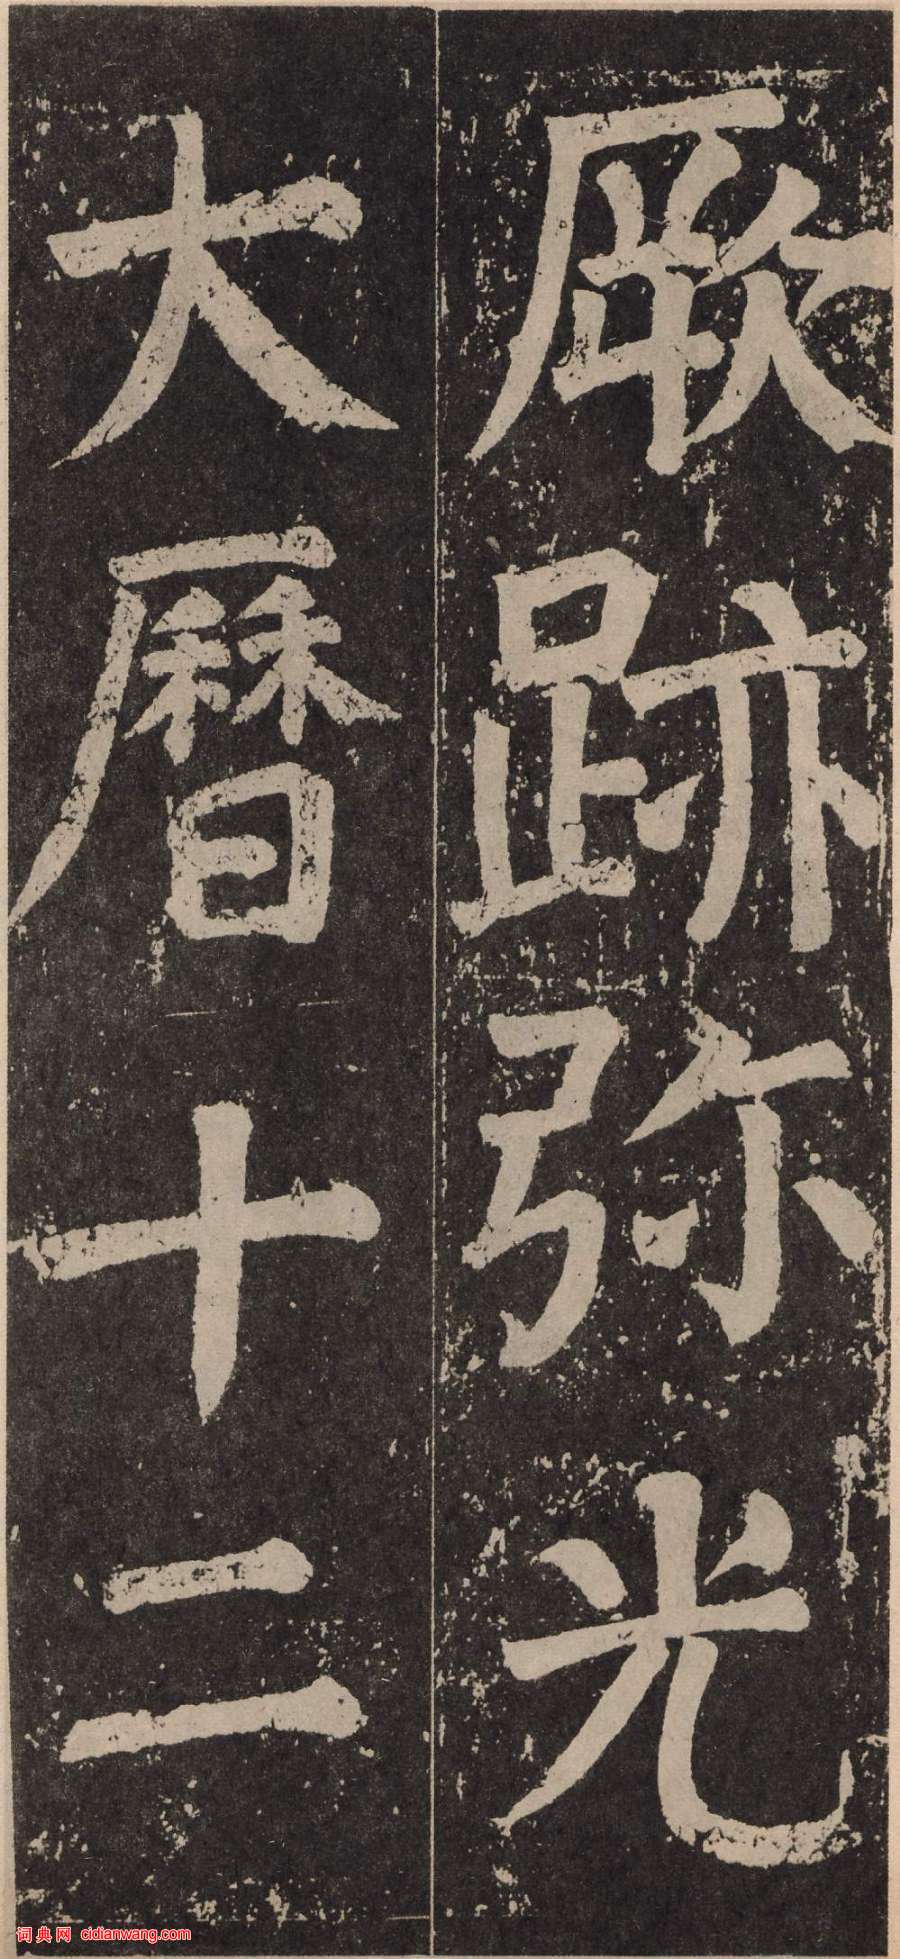 厥跡弥光
大曆十二
词典网 cidianwang.com